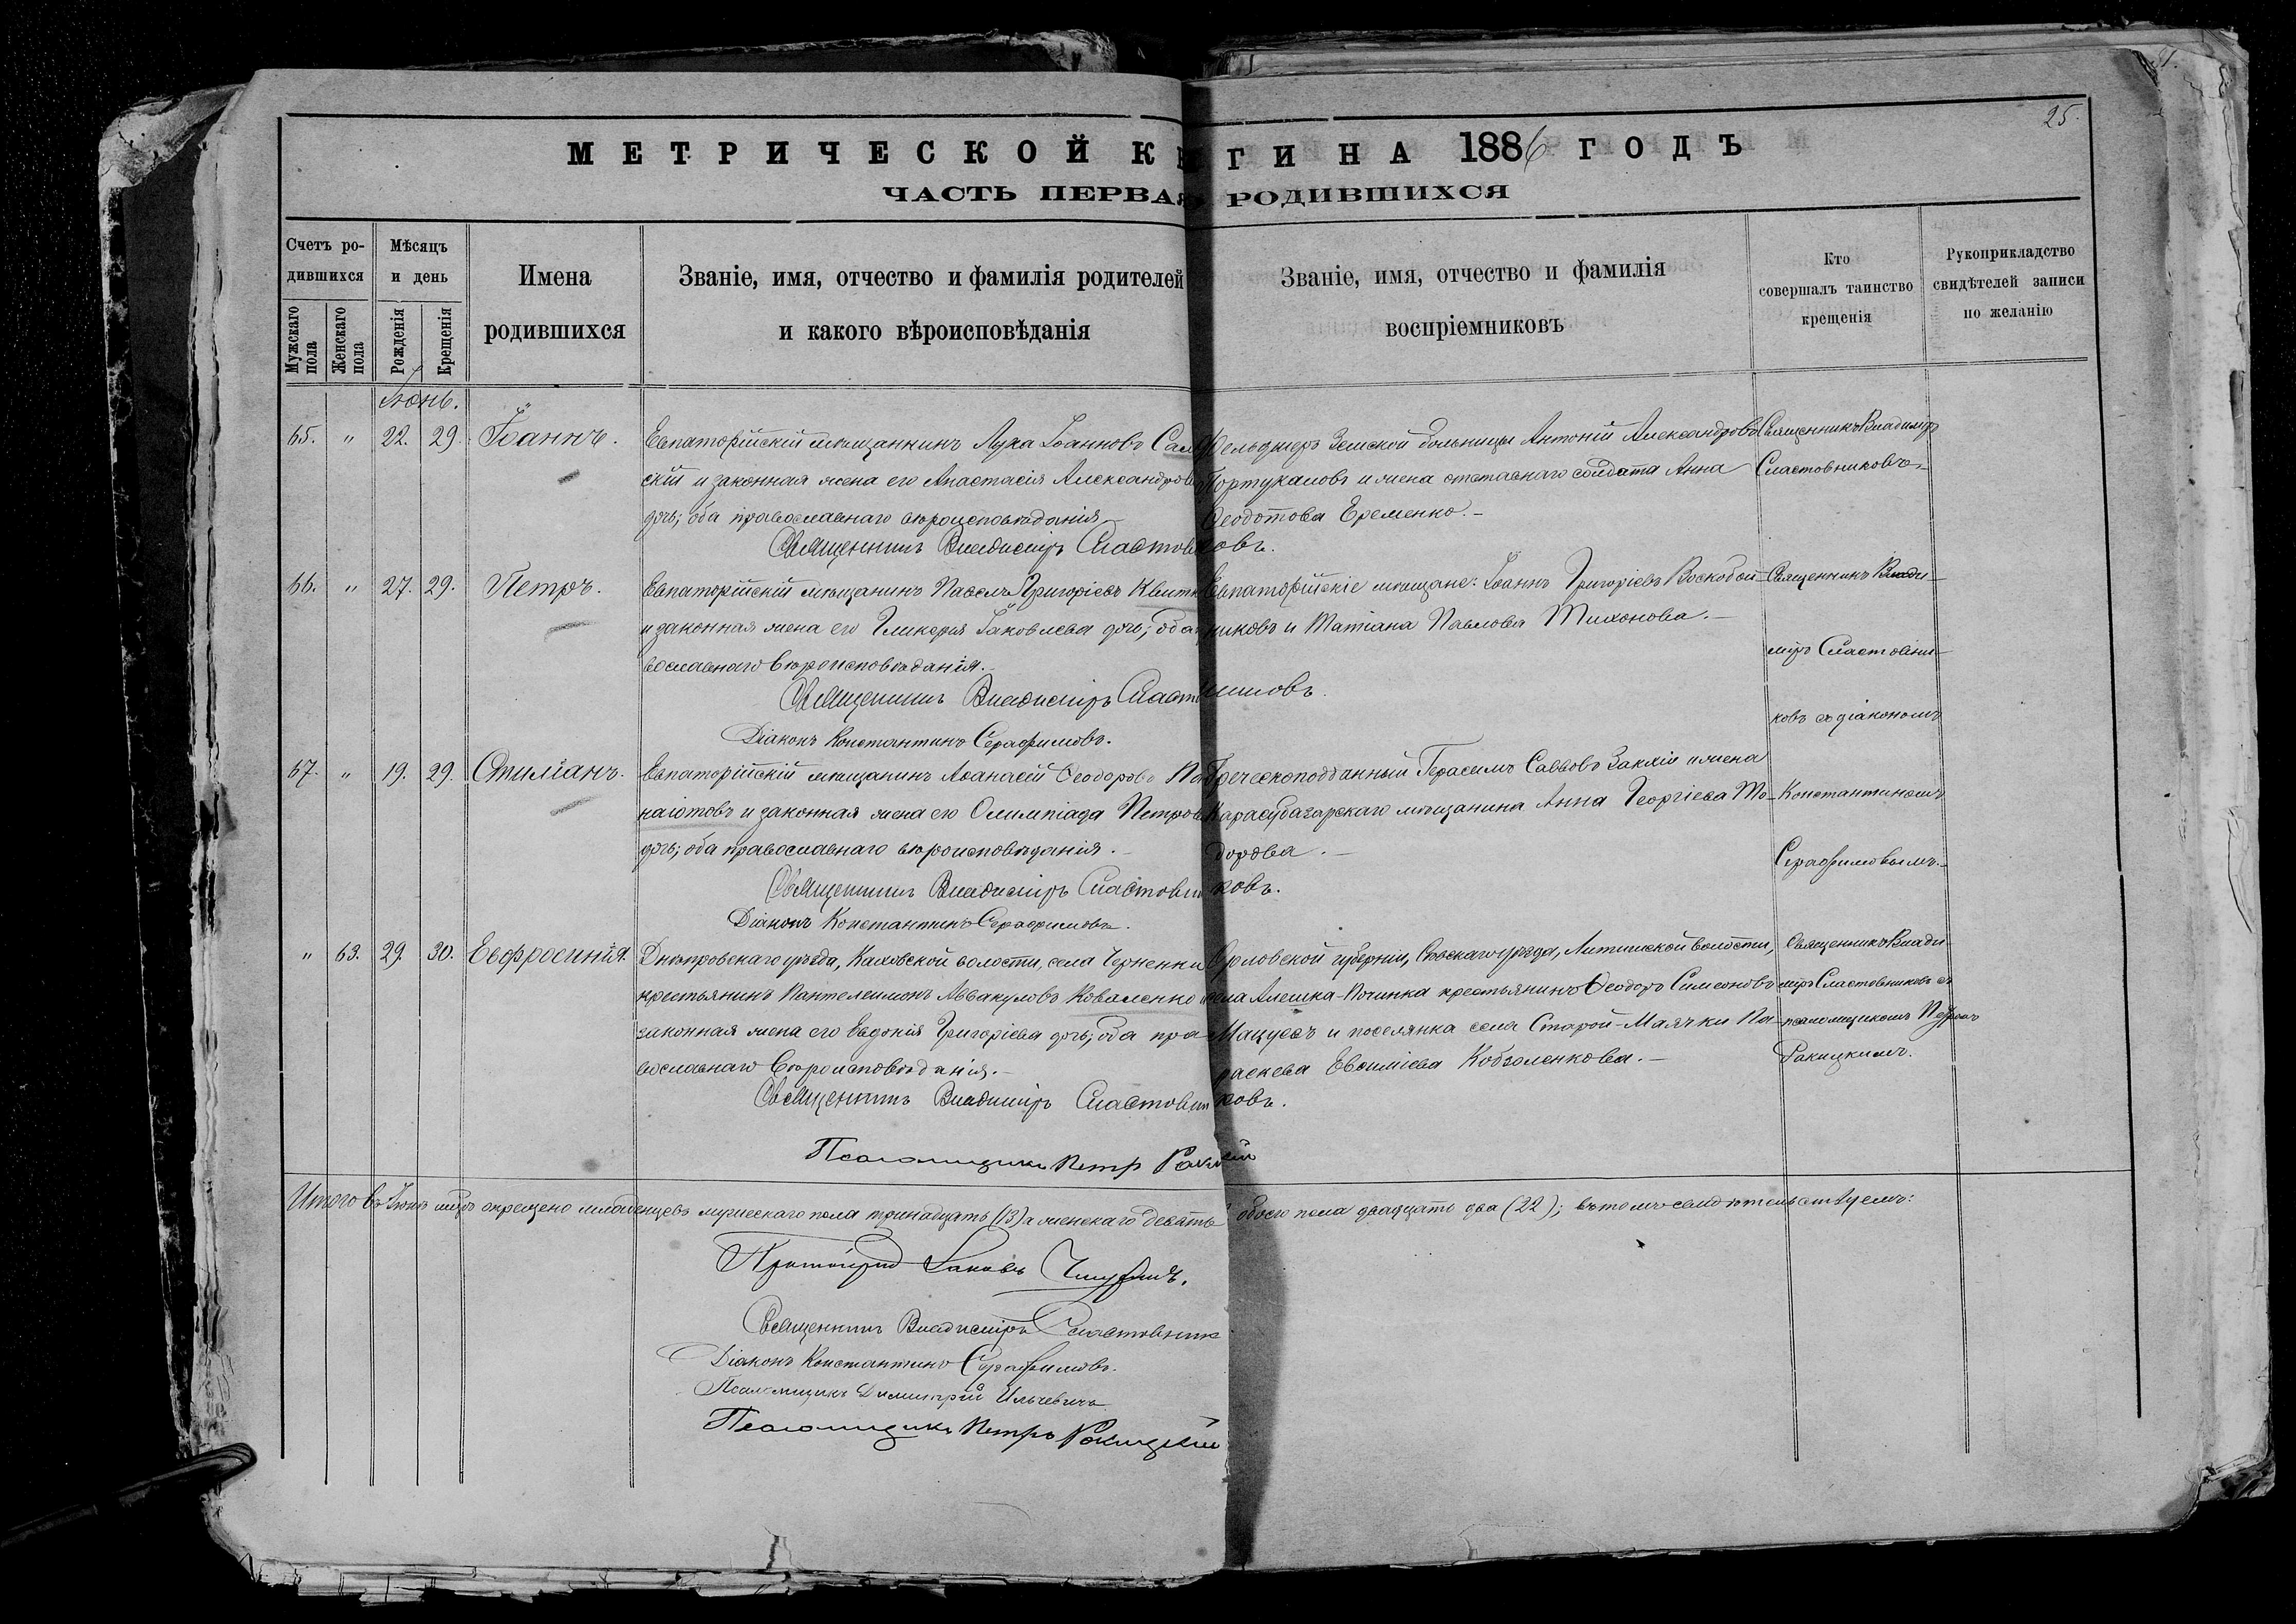 25.
МЕТРИЧЕСКОЙ КНИГИ НА 1886 ГОДЪ
ЧАСТЬ ПЕРВАЯ РОДИВШИХСЯ
Счетъ ро-
дившихся
Мужскаго пола
Женскаго пола
Мѣсяцъ
и день
Рожденія
Крещенія
Имена
родившихся
Званіе, имя, отчество и фамилія родителей
и какого вѣроисповѣданія
Званіе, имя, отчество и фамилія
воспріемниковъ
Кто
совершалъ таинство
крещенія
Рукоприкладство
свидѣтелей записи
по желанію
Іюнь.
65. " 22. 29. Іоаннъ.
Евпаторійскій мѣщанинъ Лука Іоанновъ
скій и законная жена его Анастасія Александрова
дочь; оба православнаго вѣроисповѣданія
Фельдшеръ Земской больницы Антоній Александровъ
Портукаловъ и жена отставнаго солдата Анна
Ѳеодотова Еременко.
Священникъ Владиміръ
Сластовниковъ
Священникъ Владиміръ Сластовниковъ.
66. " 27. 29. Петръ.
Евпаторійскій мѣщанинъ Павелъ Григорьевъ
и законная жена его Гликерія Іаковлева дочь; оба
вославнаго вѣроисповѣданія.
Евпаторійскіе мѣщане: Іоаннъ Григорьевъ Воскобой-
никовъ и Татіана Павлова Тихонова.
Священникъ Влади-
міръ Сластовни-
ковъ съ діакономъ
Священникъ Владиміръ Сластовниковъ.
Діаконъ Константинъ Серафимовъ.
67. " 19. 29. Стиліанъ.
Евпаторійскій мѣщанинъ Аѳанасій Ѳеодоровъ Па
наіотовъ и законная жена его Олимпіада Петрова
дочь; оба православнаго вѣроисповѣданія.
Греческоподданный Герасимъ Саввовъ Заккіи и жена
Карасубазарскаго мѣщанина Анна Георгіева То-
дорова.
Константиномъ
Серафимовымъ.
Священникъ Владиміръ Сластовниковъ.
Діаконъ Константинъ Серафимовъ.
" 63. 29. 30. Евфросинія.
Днѣпровскаго уѣзда, Каховской волости, села Черненьки
крестьянинъ Пантелеимонъ Аввакумовъ Коваленко и
законная жена его Евдокія Григорьева дочь; оба пра
вославнаго вѣроисповѣданія.
Орловской губерніи, Сѣвскаго уѣзда, волости,
села Алешка-Починка крестьянинъ Ѳеодоръ Симеоновъ
Мацуевъ и поселянка села Старой-Маячки Па-
раскева Евѳиміева Кобзаленкова.
Священникъ Влади-
міръ Сластовниковъ съ
псаломщикомъ Петромъ
Ракицкимъ.
Священникъ Владиміръ Сластовниковъ.
Псаломщикъ Петръ Ракицкій
Итого въ Іюнѣ мѣс. окрещено младенцевъ мужескаго пола тринадцать (13) а женскаго девять обоего пола двадцать два (22); въ томъ свидѣтельствуемъ:
Протоіерей Іаковъ
Священникъ Владиміръ Сластовник
Діаконъ Константинъ Серафимовъ.
Псаломщикъ Димитрій Ильчевичъ
Псаломщикъ Петръ Ракицкій